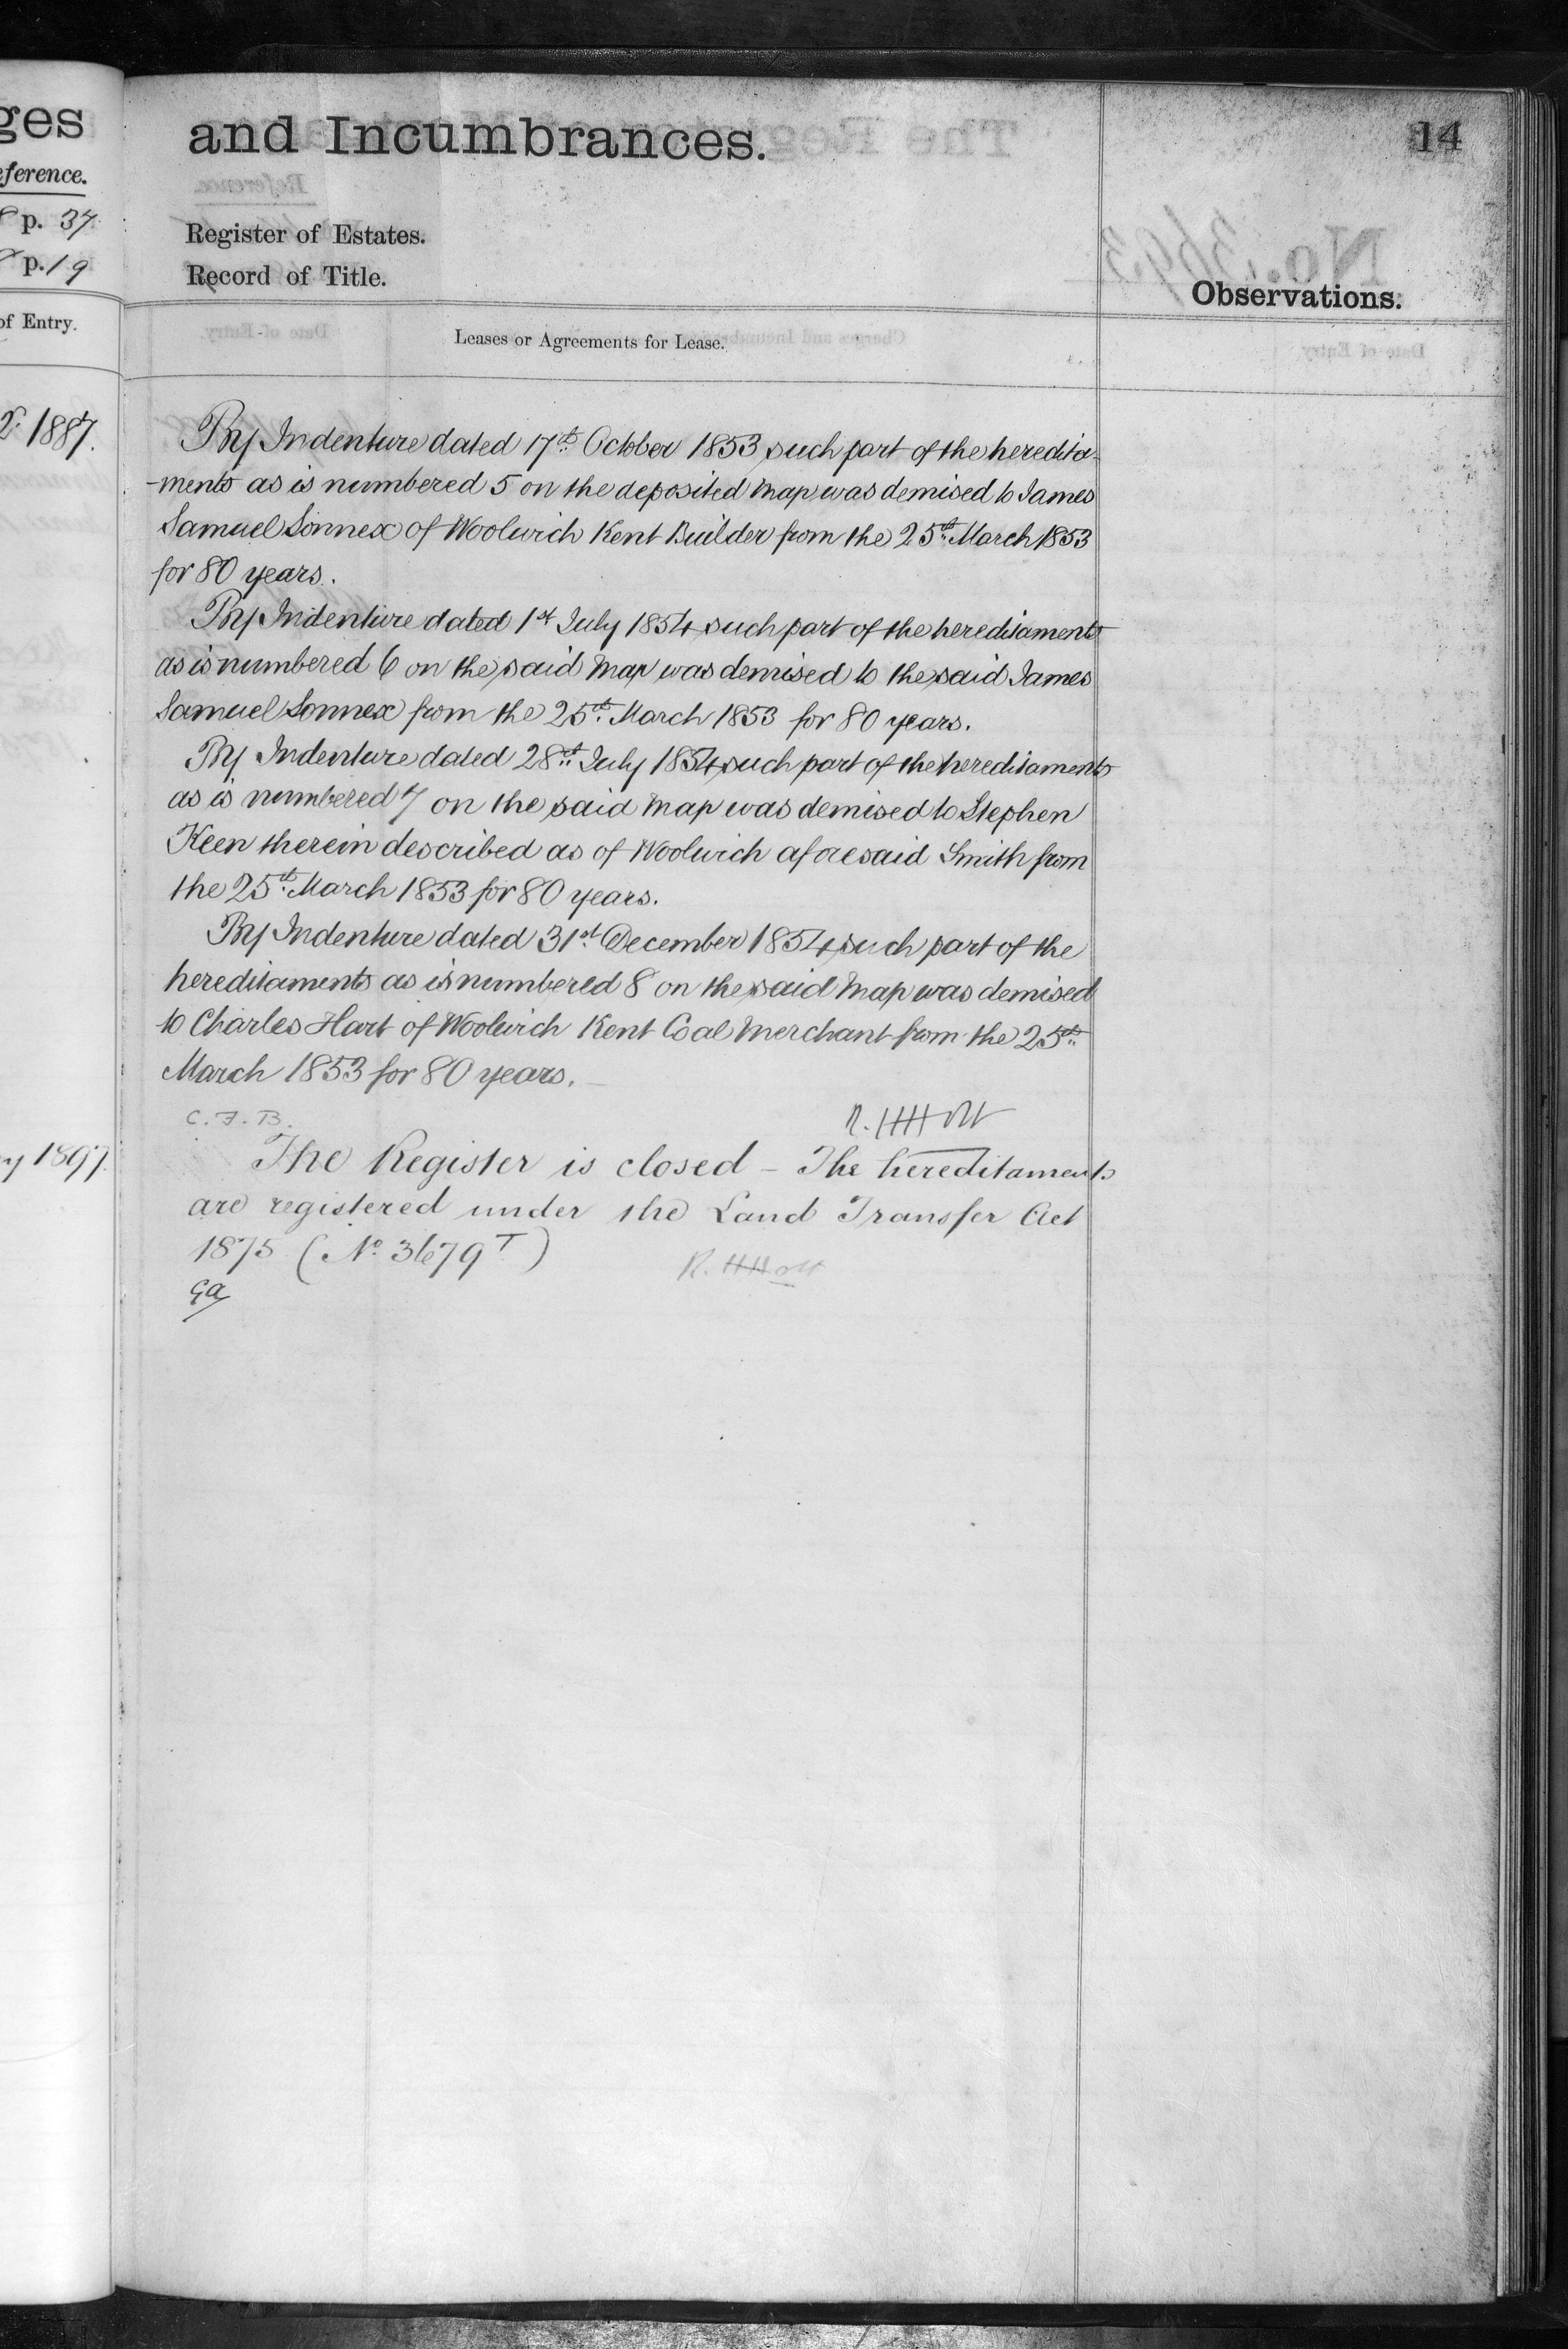 ges
eference.
p. 37
p. 19
of Entry.
1887.
1897.
and Incumbrances.
14
Register of Estates.
Record of Title.
Observations.
Leases or Agreements for Lease.
By Indenture dated 17th October 1853 such part of the heredita-
-ments as is numbered 5 on the deposited Map was demised to James
Samuel Sonnex of Woolwich Kent Builder from the 25th March 1853
for 80 years.
By Indenture dated 1st July 1854 such part of the hereditaments
as is numbered 6 on the said Map was demised to the said James
Samuel Sonnex from the 25th March 1853 for 80 years.
By Indenture dated 28th July 1854 such part of the hereditaments
as is numbered 7 on the said Map was demised to Stephen
Keen therein described as of Woolwich aforesaid Smith from
the 25th March 1853 for 80 years.
By Indenture dated 31st December 1854 such part of the
hereditaments as is numbered 8 on the said Map was demised
to Charles Hart of Woolwich Kent Coal Merchant from the 25th
March 1853 for 80 years.
C. F. B.
R. H Holt
The Register is closed - The hereditaments
are registered under the Land Transfer Act
1875 (No 3679 T)
R. H Holt